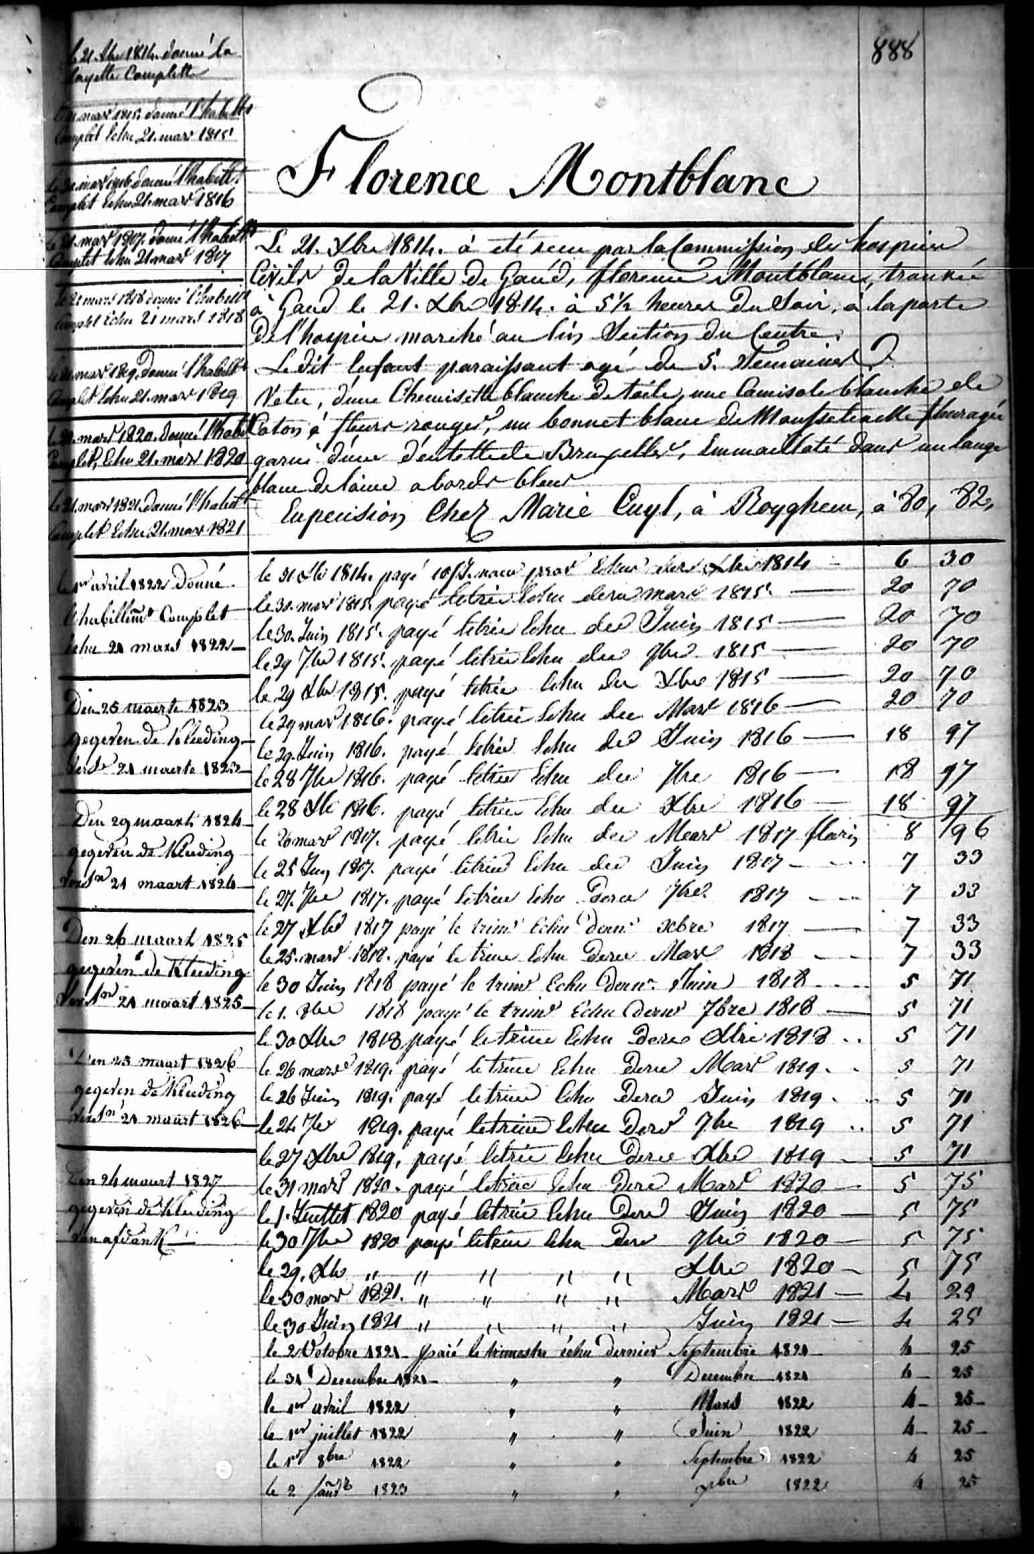 888
Florence Montblanc
le 21. Xbre 1814. donné la
layette Complette
le 21. mars 1815. donné l'habillt
Complet Echu 21. mars 1815
le 21. mars 1816. donné l'habillt
Complet Echu 21. mars 1816
le 21. mars 1817. donné l'habillt
Complet Echu 21. mars 1817
le 21 mars 1818 donné l'habillt
Complet Echu 21 mars 1818
le 21. mars 1819. Donné l'habillt
Complet Echu 21. mars 1819
le 21. mars 1820. Donné l'habillt
Complet, Echu 21. mars 1820
le 21. mars 1821. donné l'habillt
Complet Echu 21. mars 1821
le 1er avril 1822 Donné
l'habillemt Complet
Echu 21 mars 1822
Den 25 maerte 1823
gegeven de Kleeding
21 maerte 1823
Den 29 maart 1824
gegeven de Kleeding
21 maart 1824
Den 26 maart 1825
gegeven de Kleeding
21 maart 1825
Den 25 maart 1826
gegeven de Kleeding
21 maart 1826
Den 24 maart 1827
gegeven de Kleeding
Le 21. Xbre 1814. à été recu par la Commission des hospices
Civils de la Ville de Gand, florence Montblanc, trouvée
à Gand le 21. Xbre 1814. à 5½ heures du Soir, à la porte
de l'hospice marché au lin Section du Centre.
Le dit Enfant paraissant agé de 5. Semaines
Vetu, d'une Chemisette blanche de toile, une Camisole blanche de
Coton à fleurs rouges, un bonnet blanc de Mousselinette fleuragée
garni d'une dentelle de Bruxelles, Emmailloté dans un lange
blanc de laine a bords bleus
En pension Chez Marie Cuyl, à Royghem, à 80, 82,
le 31 Xbre 1814. payé 10 Echus dern Xbre 1814 6 30
le 31. mars 1815 payé letrim Echu dern mars 1815. 20 70
le 30. Juin 1815. payé letrim Echu der Juin 1815 20 70
le 29 7bre 1815. payé letrim Echu der 7bre 1815 20 70
le 29 Xbre 1815. payé letrim Echu der Xbre 1815 20 70
le 29 mars 1816. payé letrim Echu der Mars 1816 20 70
le 29. Juin 1816. payé letrim Echu der Juin 1816 18 97
le 28 7bre 1816. payé letrim Echu der 7bre 1816 18 97
le 28 Xbre 1816. payé letrim Echu der Xbre 1816 18 97
le 20 mars 1817. payé letrim Echu der Mars 1817 florins 8 96
le 25 Juin 1817. payé letrim Echu der Juin 1817 7 33
le 27. 7bre 1817. payé letrim Echu dern 7bre 1817 7 33
le 27 Xbre 1817 payé le trim Echu dern Xbre 1817 7 33
le 25. mars 1818. payé le trim Echu dern Mars 1818 7 33
le 30 Juin 1818 payé le trim Echu dern Juin 1818 5 71
le 1. 8bre 1818 payé le trim Echu dern 7bre 1818 5 71
le 30 Xbre 1818 payé le trim Echu dern Xbre 1818 5 71
le 26 mars 1819. payé le trim Echu dern Mars 1819. 5 71
le 26 Juin 1819. payé letrim Echu dern Juin 1819. 5 71
le 24 7bre 1819. payé letrim Echu dern 7bre 1819 5 71
le 27 Xbre 1819. payé letrim Echu dern Xbre 1819 5 71
le 31 mars 1820. payé letrim Echu dern Mars 1820 5 75
le 1. Juillet 1820 payé letrim Echu dern Juin 1820 5 75
le 30 7bre 1820 payé letrim Echu dern 7bre 1820 5 75
le 29. Xbre " " " " " Xbre 1820 5 75
le 30 mars 1821. " " " " Mars 1821 4 24
le 30 Juin 1821 " " " " Juin 1821 4 25
le 2 Octobre 1821 payé le trimestre échu dernier Septembre 1821 4 25
le 31 Decembre 1821 " " Decembre 1821 4 25
le 1er avril 1822 " " Mars 1822 4 25
le 1er juillet 1822 " " Juin 1822 4 25
le 1er 8bre 1822 " " Septembre 1822 4 25
le 2 Janvr 1823 " " Xbre 1822 4 25